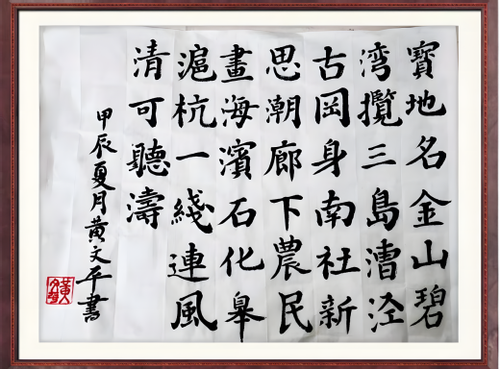 寶地名金山碧
湾攬三島漕泾
古岡身南社新
思潮廊下農民
畫海濱石化皋
滬杭一綫連風
清可聽濤
甲辰夏月黄文平書